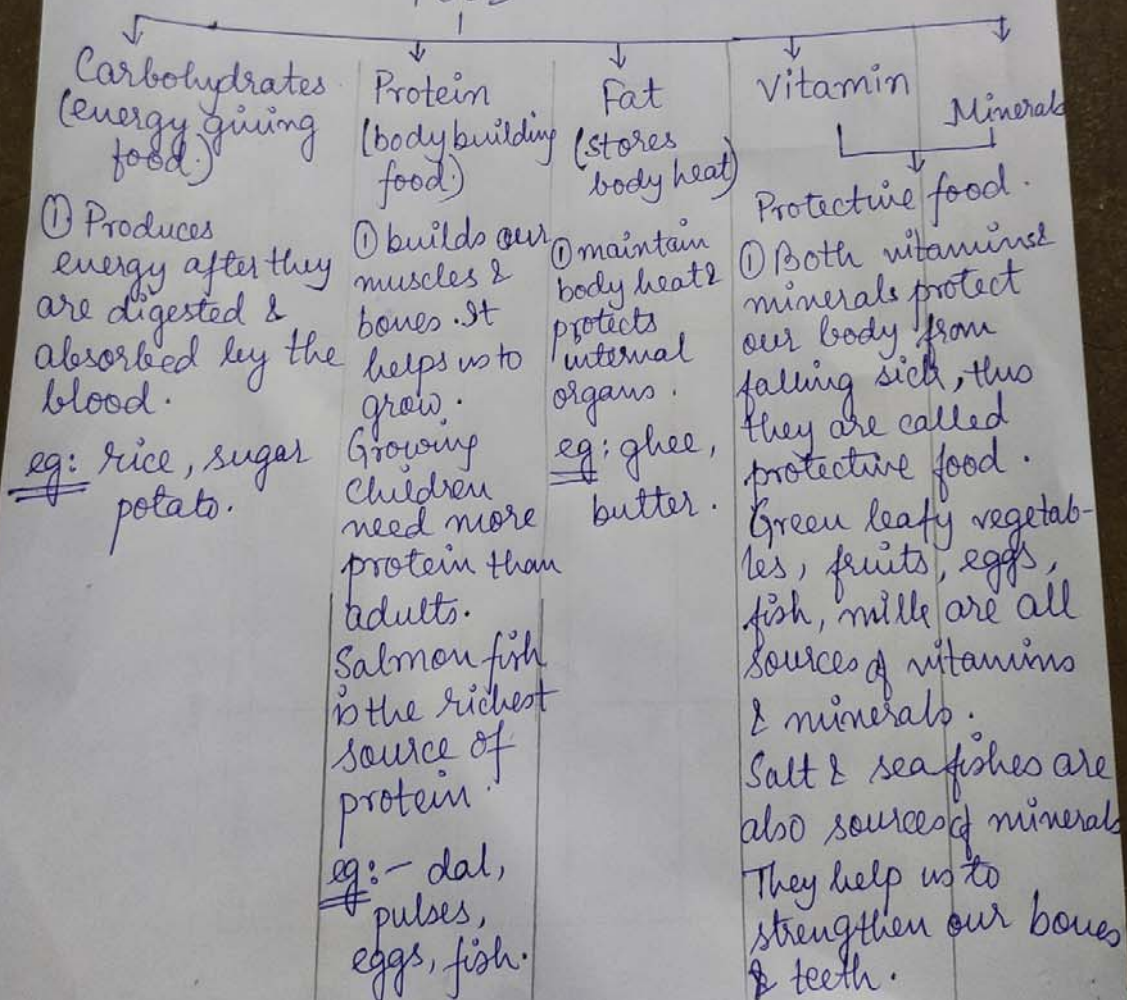 Carbohydrates
(energy giving
food.)
① Produces
energy after they
are digested &
absorbed by the
blood.
eg: rice, sugar
potato.
Protein
(body building
food.)
① builds our
muscles &
bones. It
helps us to
grow.
Growing
children
need more
protein than
adults.
Salmon fish
is the richest
source of
protein.
eg:- dal,
pulses,
eggs, fish.
Fat
(stores
body heat)
① maintain
body heat &
protects
internal
organs.
eg: ghee,
butter.
Vitamin
Minerals
Protective food.
① Both vitamins &
minerals protect
our body from
falling sick, thus
they are called
protective food.
Green leafy vegetab-
les, fruits, eggs,
fish, milk are all
sources of vitamins
& minerals.
Salt & sea fishes are
also sources of minerals
They help us to
strengthen our bones
& teeth.